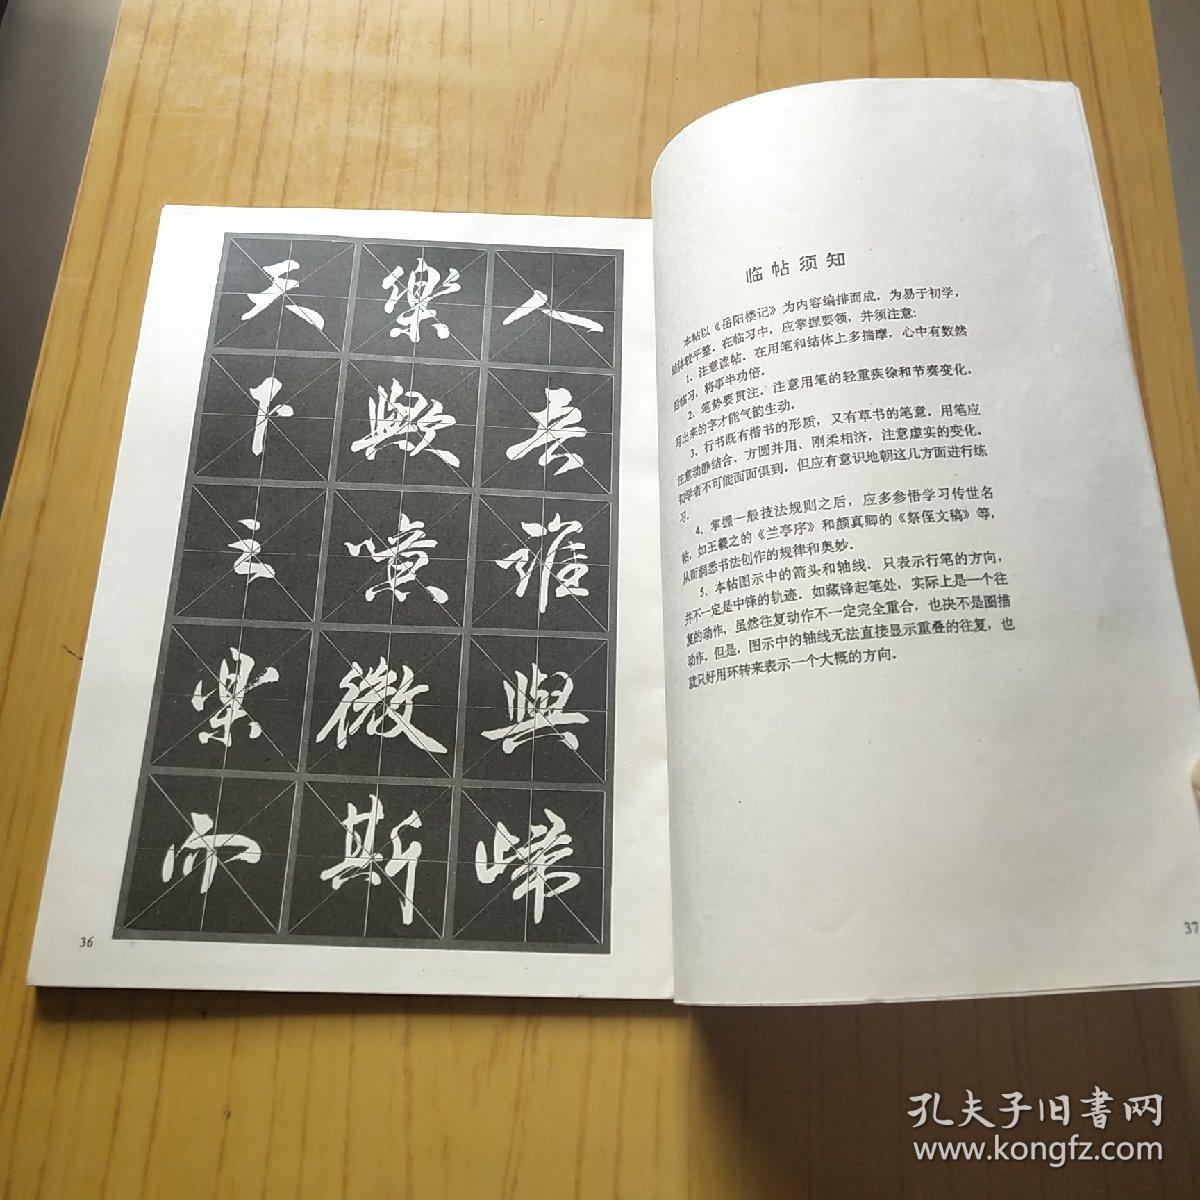 天下之樂而
樂歟噫微斯
人吾誰與歸
36
临帖须知
本帖以《岳阳楼记》为内容编排而成．为易于初学，
结体较平整．在临习中，应掌握要领，并须注意：
1、注意读帖．在用笔和结体上多揣摩，心中有数然
后临习，将事半功倍．
2、笔势要贯注．注意用笔的轻重疾徐和节奏变化，
写出来的字才能气韵生动．
3、行书既有楷书的形质，又有草书的笔意．用笔应
注意动静结合、方圆并用、刚柔相济，注意虚实的变化．
初学者不可能面面俱到，但应有意识地朝这几方面进行练
习．
4、掌握一般技法规则之后，应多参悟学习传世名
帖，如王羲之的《兰亭序》和颜真卿的《祭侄文稿》等，
从而洞悉书法创作的规律和奥妙．
5、本帖图示中的箭头和轴线，只表示行笔的方向，
并不一定是中锋的轨迹．如藏锋起笔处，实际上是一个往
复的动作，虽然往复动作不一定完全重合，也决不是圈描
动作．但是，图示中的轴线无法直接显示重叠的往复，也
就只好用环转来表示一个大概的方向．
37
孔夫子旧書网
www.kongfz.com